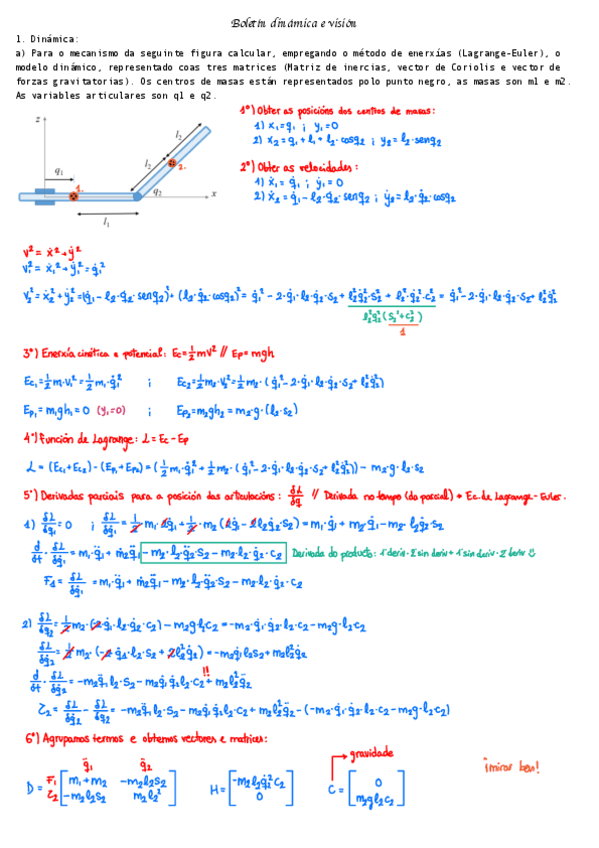 Boletín dinámica e visión
1. Dinámica:
a) Para o mecanismo da seguinte figura calcular, empregando o método de enerxías (Lagrange-Euler), o
modelo dinámico, representado coas tres matrices (Matriz de inercias, vector de Coriolis e vector de
forzas gravitatorias). Os centros de masas están representados polo punto negro, as masas son m1 e m2.
As variables articulares son q1 e q2.
1º) Obter as posicións dos centros de masas:
1) x₁ = q₁ ; y₁ = 0
2) x₂ = q₁ + l₁ + l₂·cosq₂ ; y₂ = l₂·senq₂
z
l₂
l₂
2.
q₁
1.
q₂
x
l₁
2º) Obter as velocidades:
1) ẋ₁ = q̇₁ ; ẏ₁ = 0
2) ẋ₂ = q̇₁ - l₂·q̇₂·senq₂ ; ẏ₂ = l₂·q̇₂·cosq₂
v² = ẋ² + ẏ²
v₁² = ẋ₁² + ẏ₁² = q̇₁²
v₂² = ẋ₂² + ẏ₂² = (q̇₁ - l₂·q̇₂·senq₂)² + (l₂·q̇₂·cosq₂)² = q̇₁² - 2·q̇₁·l₂·q̇₂·s₂ + l₂²q̇₂²·s₂² + l₂²·q̇₂²·c₂² = q̇₁² - 2·q̇₁·l₂·q̇₂·s₂ + l₂²q̇₂²
l₂²q̇₂²(s₂² + c₂²)
1
3º) Enerxía cinética e potencial: Ec = ½mv² // Ep = mgh
Ec₁ = ½m·v₁² = ½m₁·q̇₁² ; Ec₂ = ½m₂·v₂² = ½m₂·(q̇₁² - 2·q̇₁·l₂·q̇₂·s₂ + l₂²q̇₂²)
Ep₁ = m₁gh₁ = 0 (y₁=0) ; Ep₂ = m₂gh₂ = m₂·g·(l₂·s₂)
4º) Función de Lagrange: L = Ec - Ep
L = (Ec₁ + Ec₂) - (Ep₁ + Ep₂) = (½m₁·q̇₁² + ½m₂·(q̇₁² - 2·q̇₁·l₂·q̇₂·s₂ + l₂²q̇₂²)) - m₂·g·l₂·s₂
5º) Derivadas parciais para a posición das articulacións: δL/δq // Derivada no tempo (da parcial) → Ec. de Lagrange-Euler.
1) δL/δq₁ = 0 ; δL/δq̇₁ = ½m₁·2q̇₁ + ½·m₂(2q̇₁ - 2l₂q̇₂·s₂) = m₁·q̇₁ + m₂·q̇₁ - m₂·l₂q̇₂·s₂
d/dt · δL/δq̇₁ = m₁·q̈₁ + m₂q̈₁ - m₂·l₂·q̈₂·s₂ - m₂·l₂·q̇₂·c₂ Derivada do producto: 1 deriv·2 sin deriv + 1 sin deriv·2 deriv
F₁ = δL/δq̇₁ = m₁·q̈₁ + m₂q̈₁ - m₂·l₂·q̈₂·s₂ - m₂·l₂·q̇₂·c₂
2) δL/δq₂ = ½m₂·(-2·q̇₁·l₂·q̇₂·c₂) - m₂gl₂c₂ = -m₂·q̇₁·q̇₂·l₂·c₂ - m₂g·l₂c₂
δL/δq̇₂ = ½m₂·(-2·q̇₁·l₂·s₂ + 2l₂²q̇₂) = -m₂q̇₁l₂s₂ + m₂l₂²q̇₂
!!
d/dt · δL/δq̇₂ = -m₂q̈₁l₂·s₂ - m₂q̇₁q̇₂l₂·c₂ + m₂l₂²q̈₂
τ₂ = δL/δq̇₂ - δL/δq₂ = -m₂q̈₁·l₂·s₂ - m₂q̇₁q̇₂l₂·c₂ + m₂l₂²q̈₂ - (-m₂·q̇₁·q̇₂·l₂·c₂ - m₂g·l₂c₂)
6º) Agrupamos termos e obtemos vectores e matrices:
q̈₁ q̈₂ gravidade
D = F₁ [m₁+m₂ -m₂l₂s₂] H = [-m₂l₂q̇₂²c₂] C = [0] ¡mirar ben!
τ₂ [-m₂l₂s₂ m₂l₂²] [0] [m₂gl₂c₂]